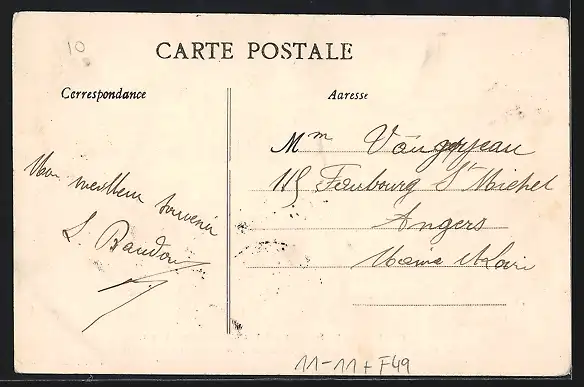 10
CARTE POSTALE
Correspondance
Adresse
Mon meilleur souvenir
L. Baudoin
Mme
115 Faubourg St Michel
Angers
Maine & Loire
11-11+ F49